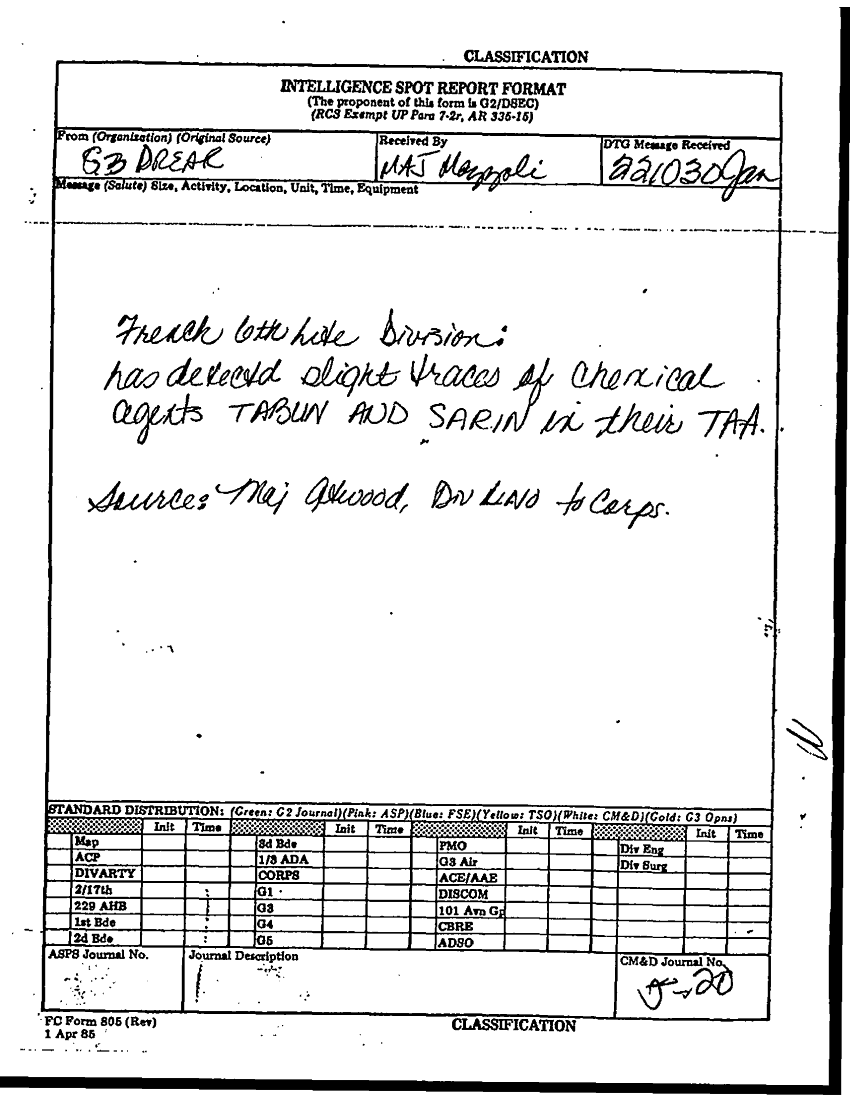 CLASSIFICATION
INTELLIGENCE SPOT REPORT FORMAT
(The proponent of this form is G2/DSEC)
(RCS Exempt UP Para 7-2r, AR 335-15)
From (Organization) (Original Source)
Received By
DTG Message Received
G3 DREAR
MAJ Mazzoli
221030 Jan
Message (Salute) Size, Activity, Location, Unit, Time, Equipment
French 6th Division:
has detected slight traces of chemical
agents TABUN AND SARIN in their TAA.
Source: Maj Atwood, Div LNO to Corps.
STANDARD DISTRIBUTION: (Green: G2 Journal)(Pink: ASP)(Blue: FSE)(Yellow: TSO)(White: CM&D)(Gold: G3 Opns)
Init Time Init Time Init Time Init Time
Map 3d Bde PMO Div Eng
ACP 1/3 ADA G3 Air Div Surg
DIVARTY CORPS ACE/AAE
2/17th G1 DISCOM
229 AHB G3 101 Avn Gp
1st Bde G4 CBRE
2d Bde G5 ADSO
ASPS Journal No. Journal Description CM&D Journal No.
J-20
FC Form 805 (Rev)
1 Apr 85
CLASSIFICATION